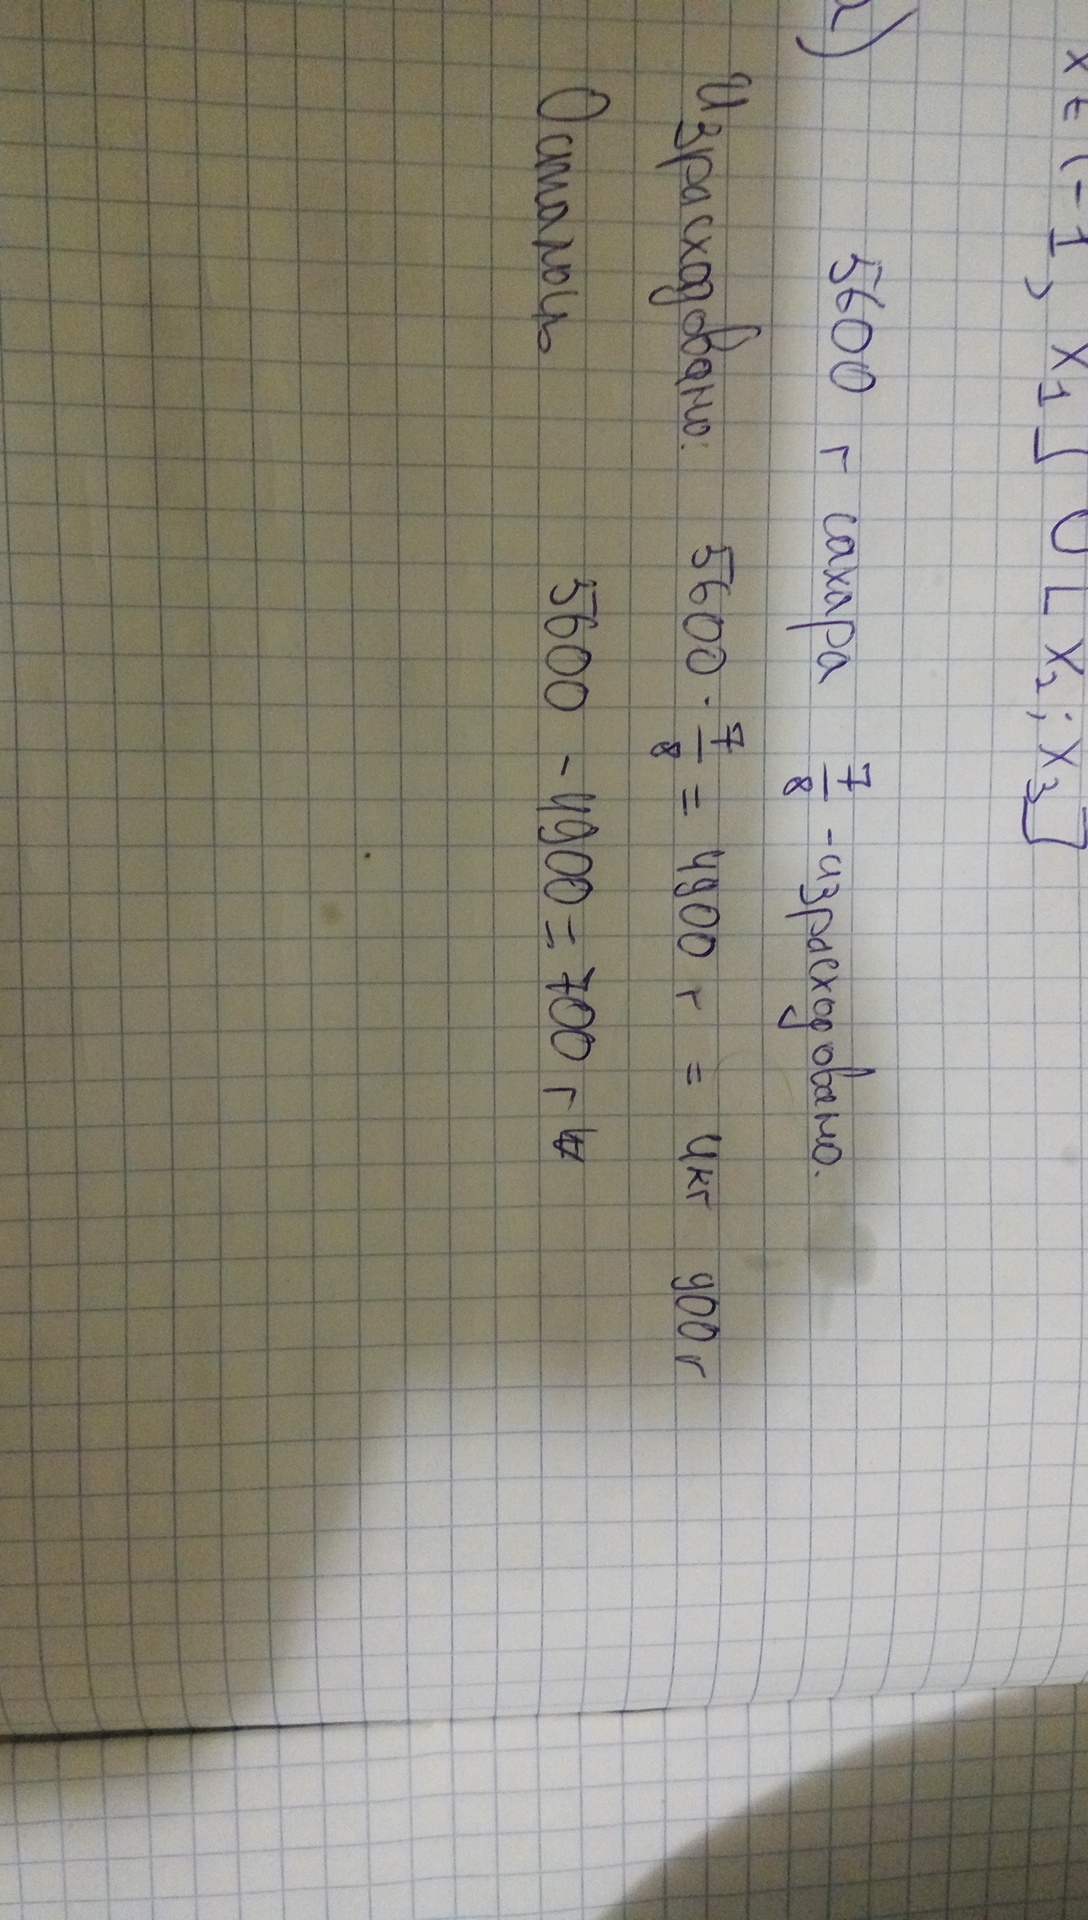 x ∈ (-1, x₁] ∪ [x₂; x₃]
5600 г сахара 7/8 - израсходовано.
Израсходовано: 5600 · 7/8 = 4900 г = 4кг 900 г
Осталось 5600 - 4900 = 700 г